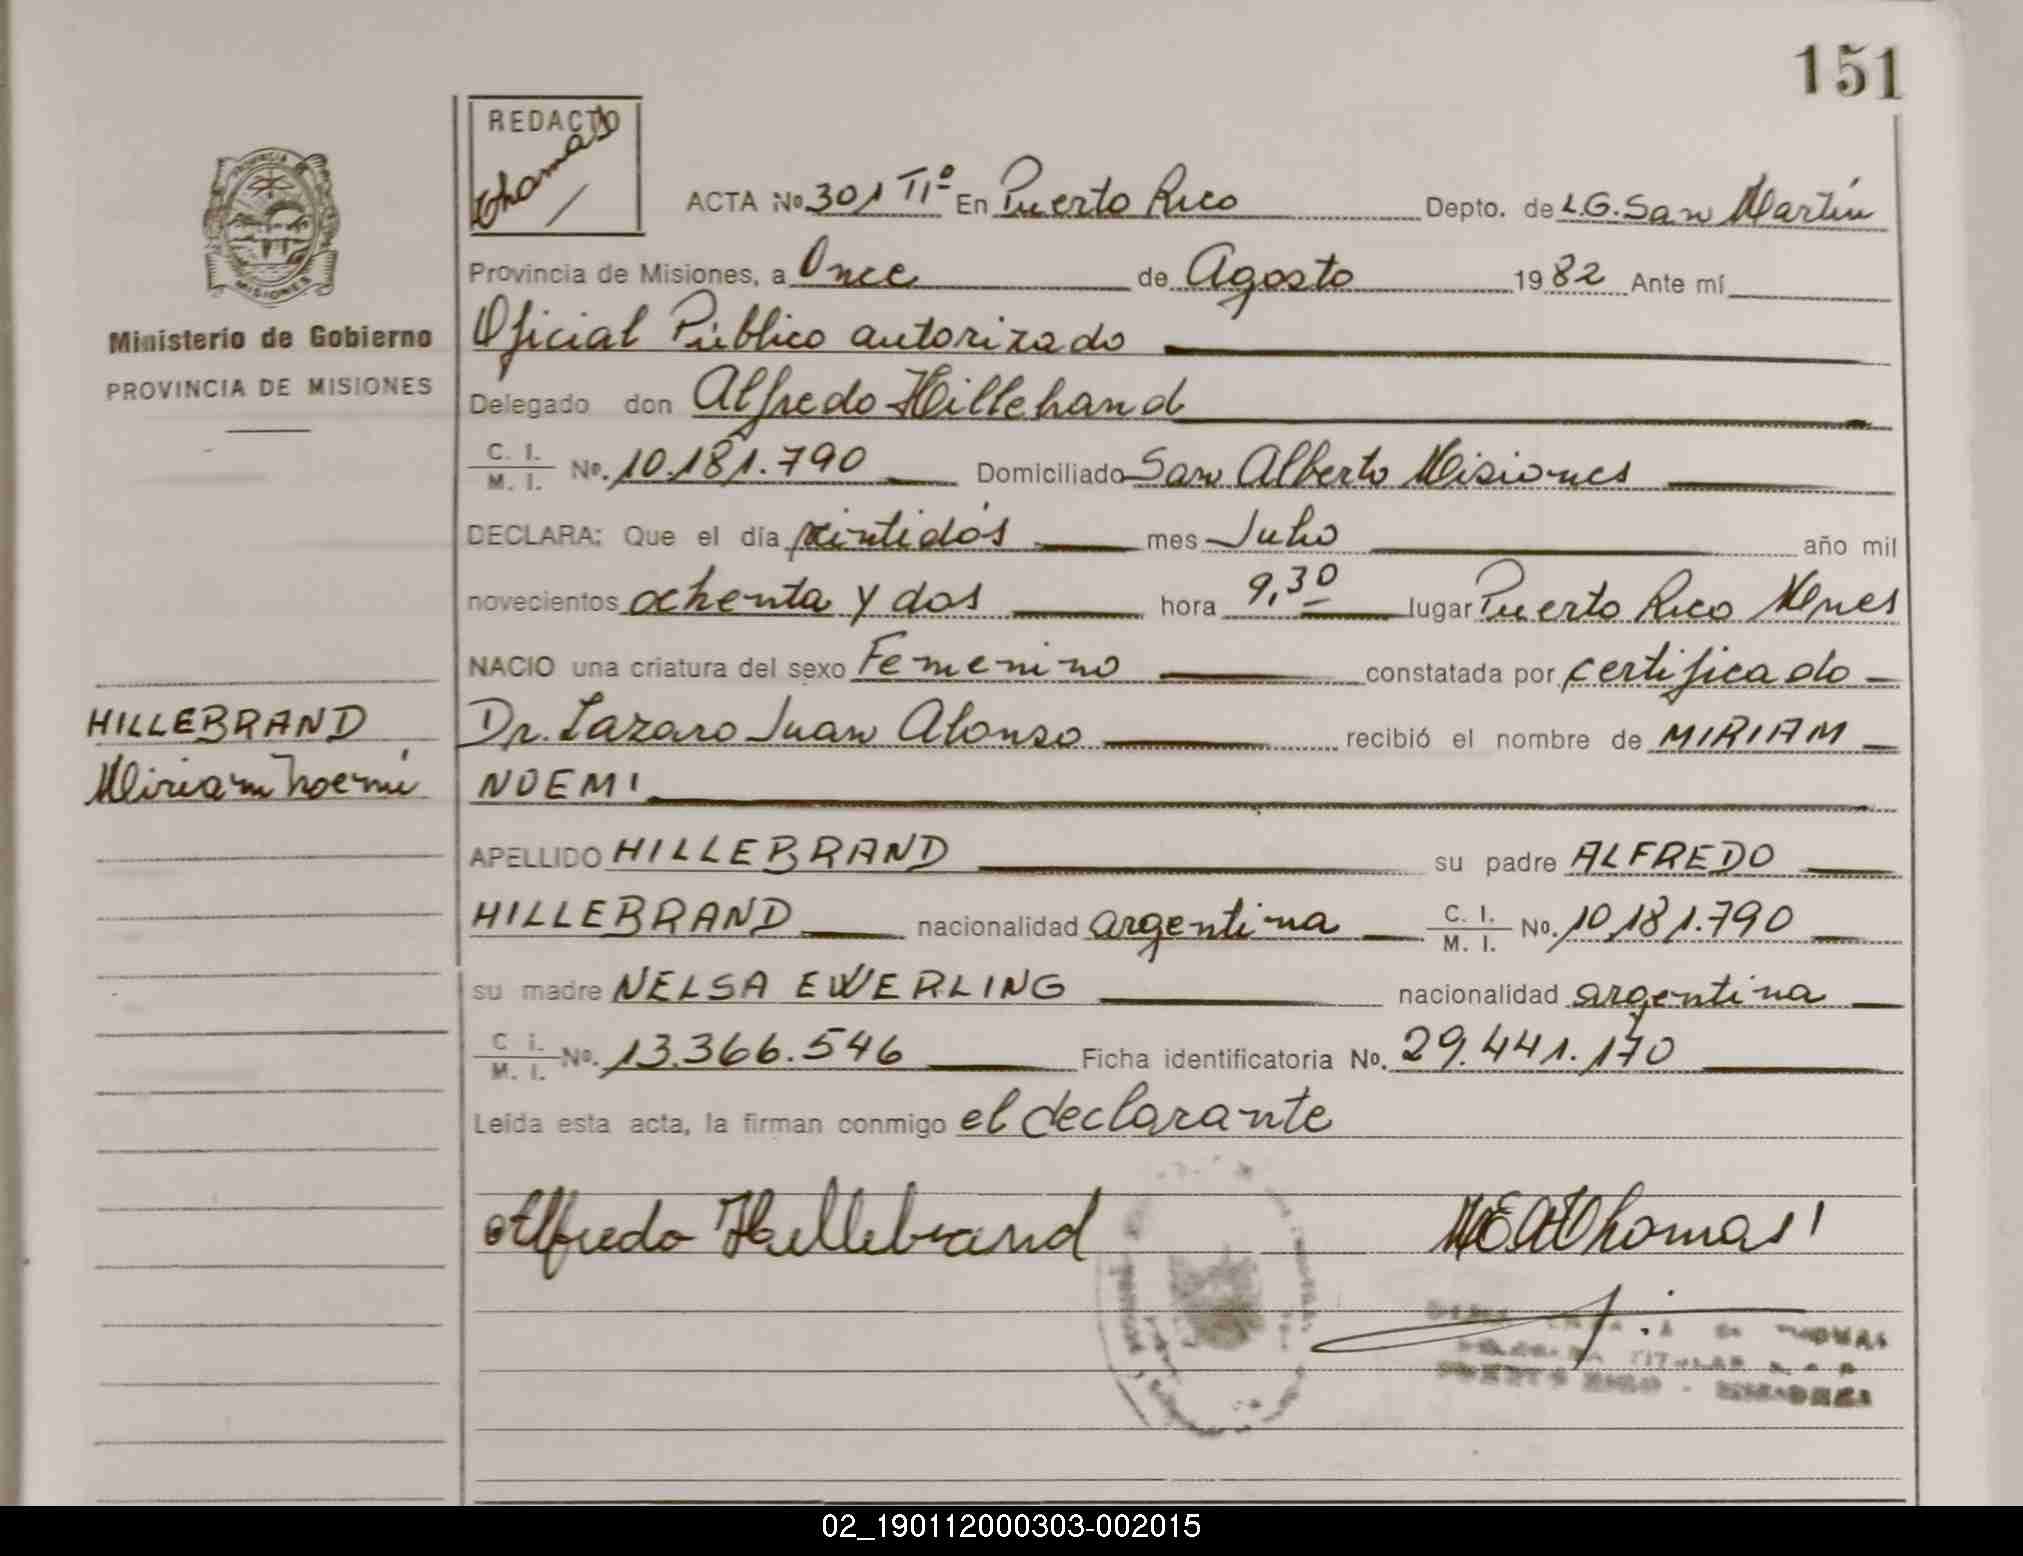 151
REDACTO
Thomas
ACTA No 301 TIº En Puerto Rico Depto. de L.G. San Martín
PROVINCIA DE
MISIONES
Provincia de Misiones, a Once de Agosto 1982 Ante mí
Ministerio de Gobierno
PROVINCIA DE MISIONES
Oficial Público autorizado
Delegado don Alfredo Hillebrand
C. I.
M. I. No. 10.181.790 Domiciliado San Alberto Misiones
DECLARA: Que el día veintidós mes Julio año mil
novecientos ochenta y dos hora 9,30 lugar Puerto Rico Mnes
NACIO una criatura del sexo Femenino constatada por certificado
HILLEBRAND
Miriam Noemí
Dr. Lazaro Juan Alonso recibió el nombre de MIRIAM
NOEMI
APELLIDO HILLEBRAND su padre ALFREDO
HILLEBRAND nacionalidad argentina C. I. M. I. No. 10.181.790
su madre NELSA EWERLING nacionalidad argentina
C. i.
M. I. No. 13.366.546 Ficha identificatoria No. 29.441.170
Leída esta acta, la firman conmigo el declarante
Alfredo Hillebrand
Thomas
TITULAR
PUERTO RICO - MISIONES
02_190112000303-002015